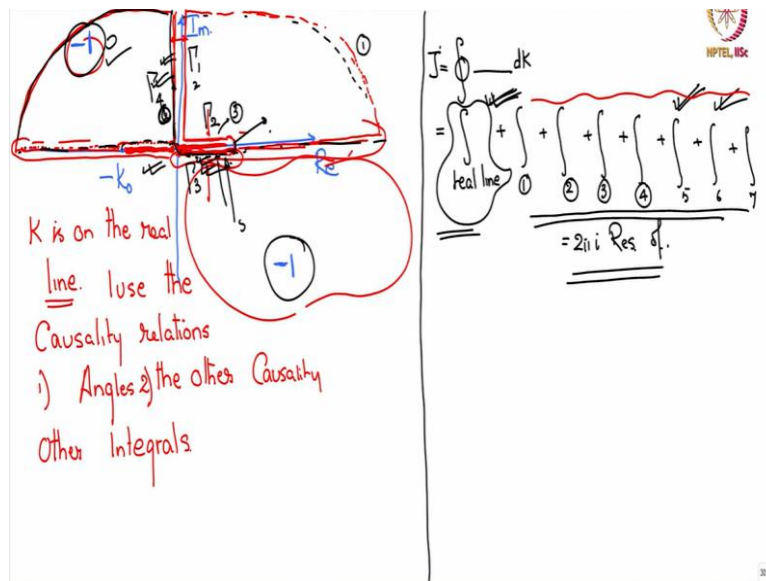 -1
Im.
①
Γ1
2
Γ4
Γ2
③
-K0
Γ3
Re
5
-1
K is on the real
line. I use the
Causality relations
1) Angles 2) the other Causality
Other Integrals
NPTEL, IISc
J = ∮ ___ dK
= ∫ + ∫ + ∫ + ∫ + ∫ + ∫ + ∫ + ∫
real line ① ② ③ ④ 5 6 7
= 2πi Res of.